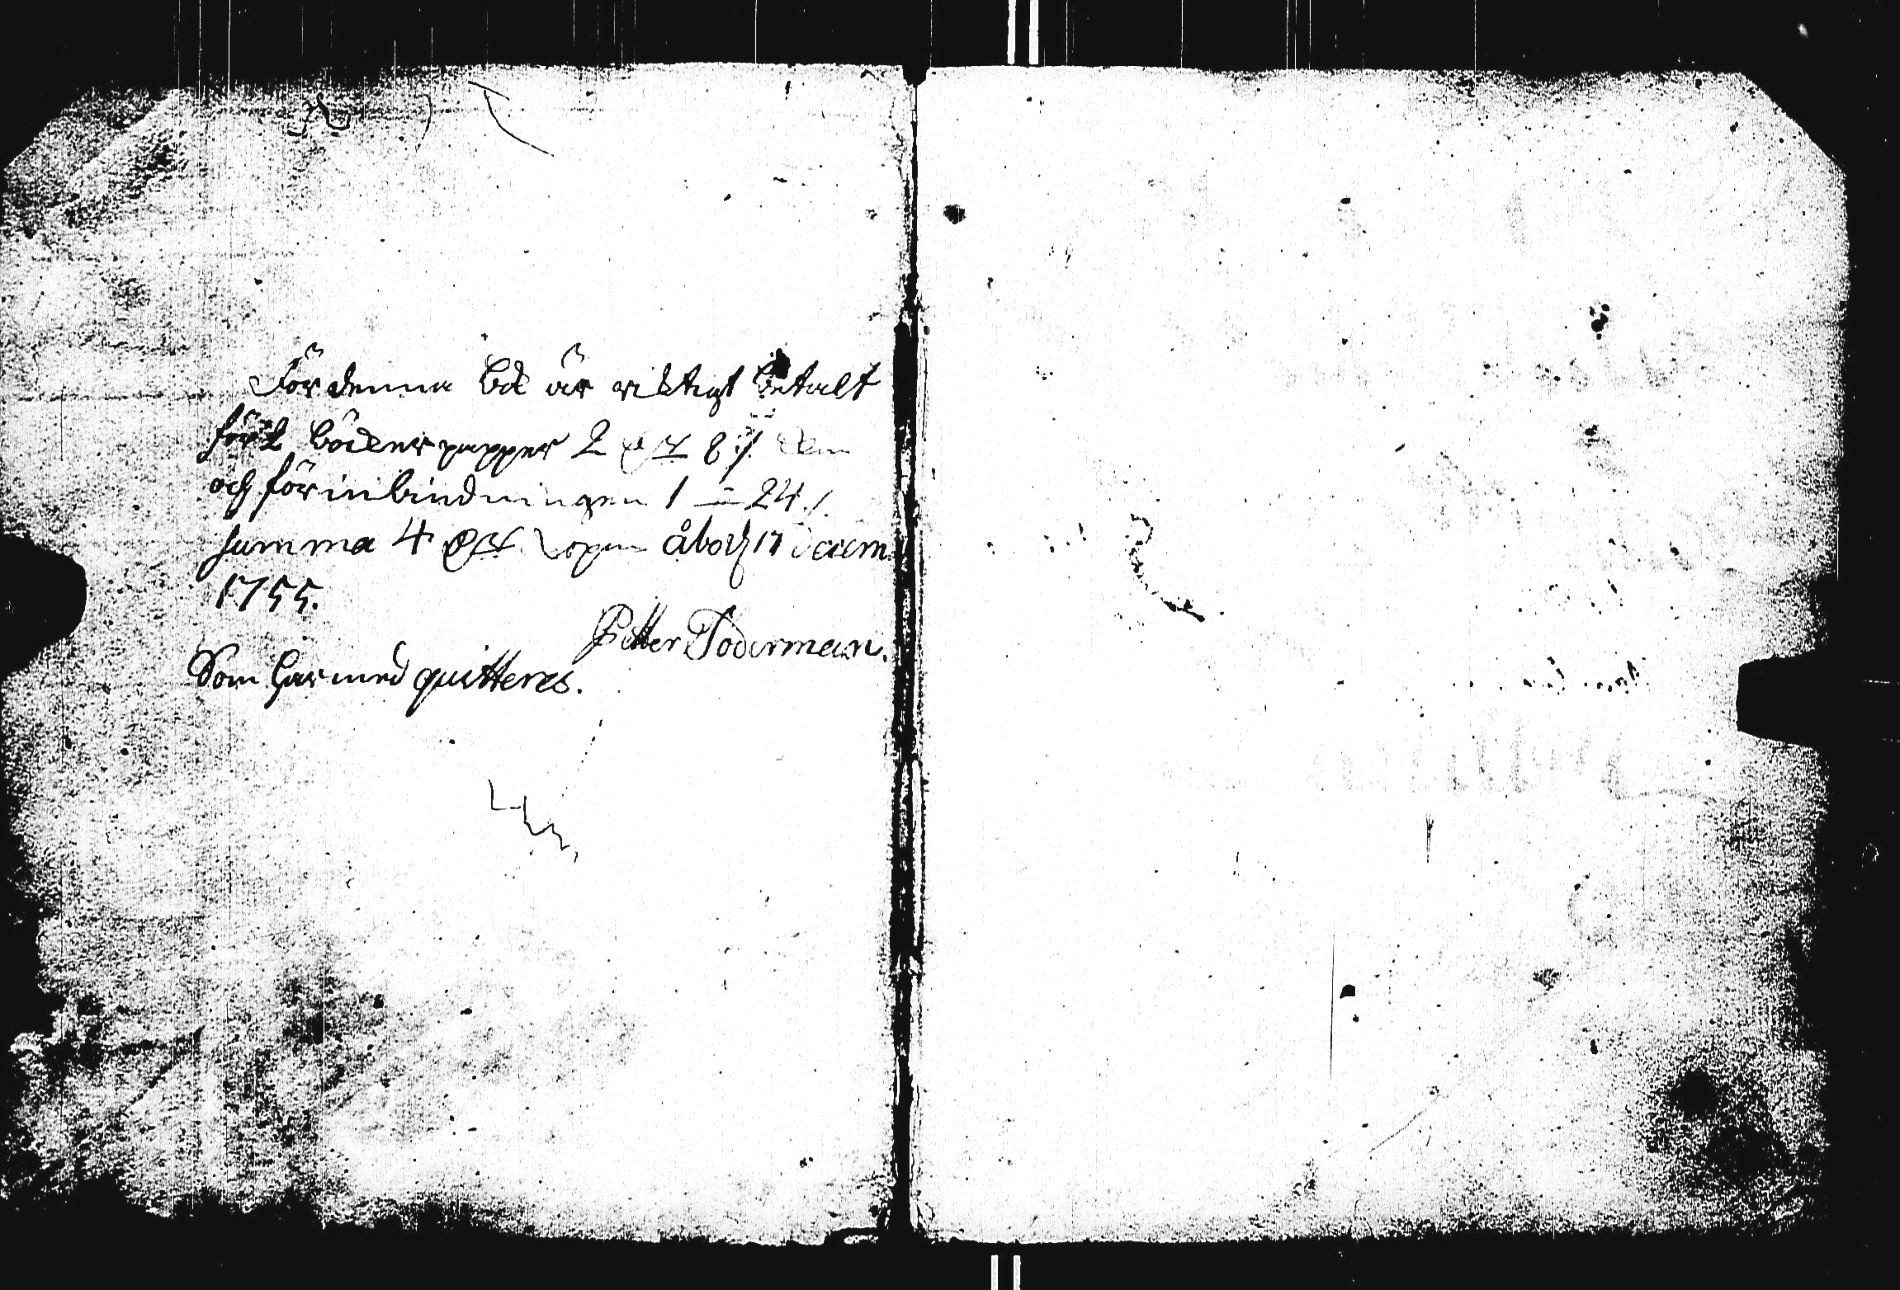 För denna bok är riktigt betalt
för 2 böcker papper 2 8
och för inbindningen 1 — 24
summa 4 åbo d 17 decem
1755.
Petter Töderman.
Som härmed quitteres.